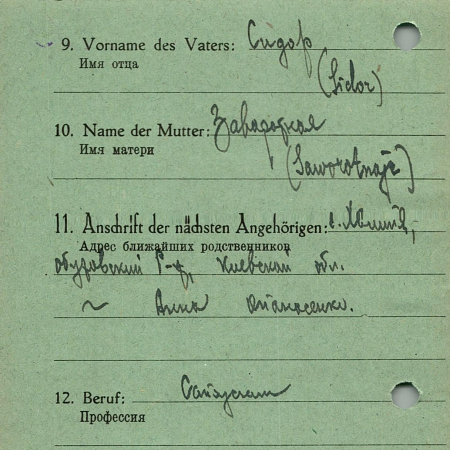 9. Vorname des Vaters: Сидор
Имя отца
(Sidor)
10. Name der Mutter: Заваротная
Имя матери
(Saworotnaja)
11. Anschrift der nächsten Angehörigen: с.
Адрес ближайших родственников
Р-н, Киевской обл.
~ Анна Опанасенко.
12. Beruf:
Профессия